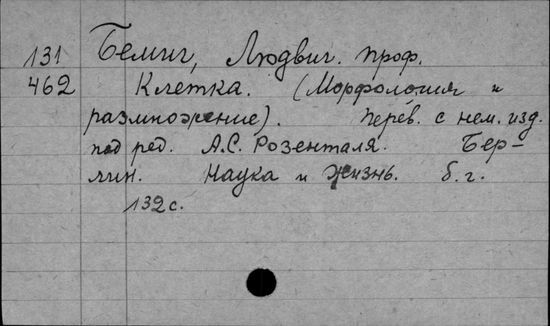 131 Бемиг, Людвиг. проф.
462 Клетка. (Морфология и
размножение). Перев. с нем. изд.
под ред. А.С. Розенталя. Бер-
лин. Наука и жизнь. б.г.
132 с.